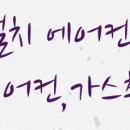 설치 에어컨
어컨,가스